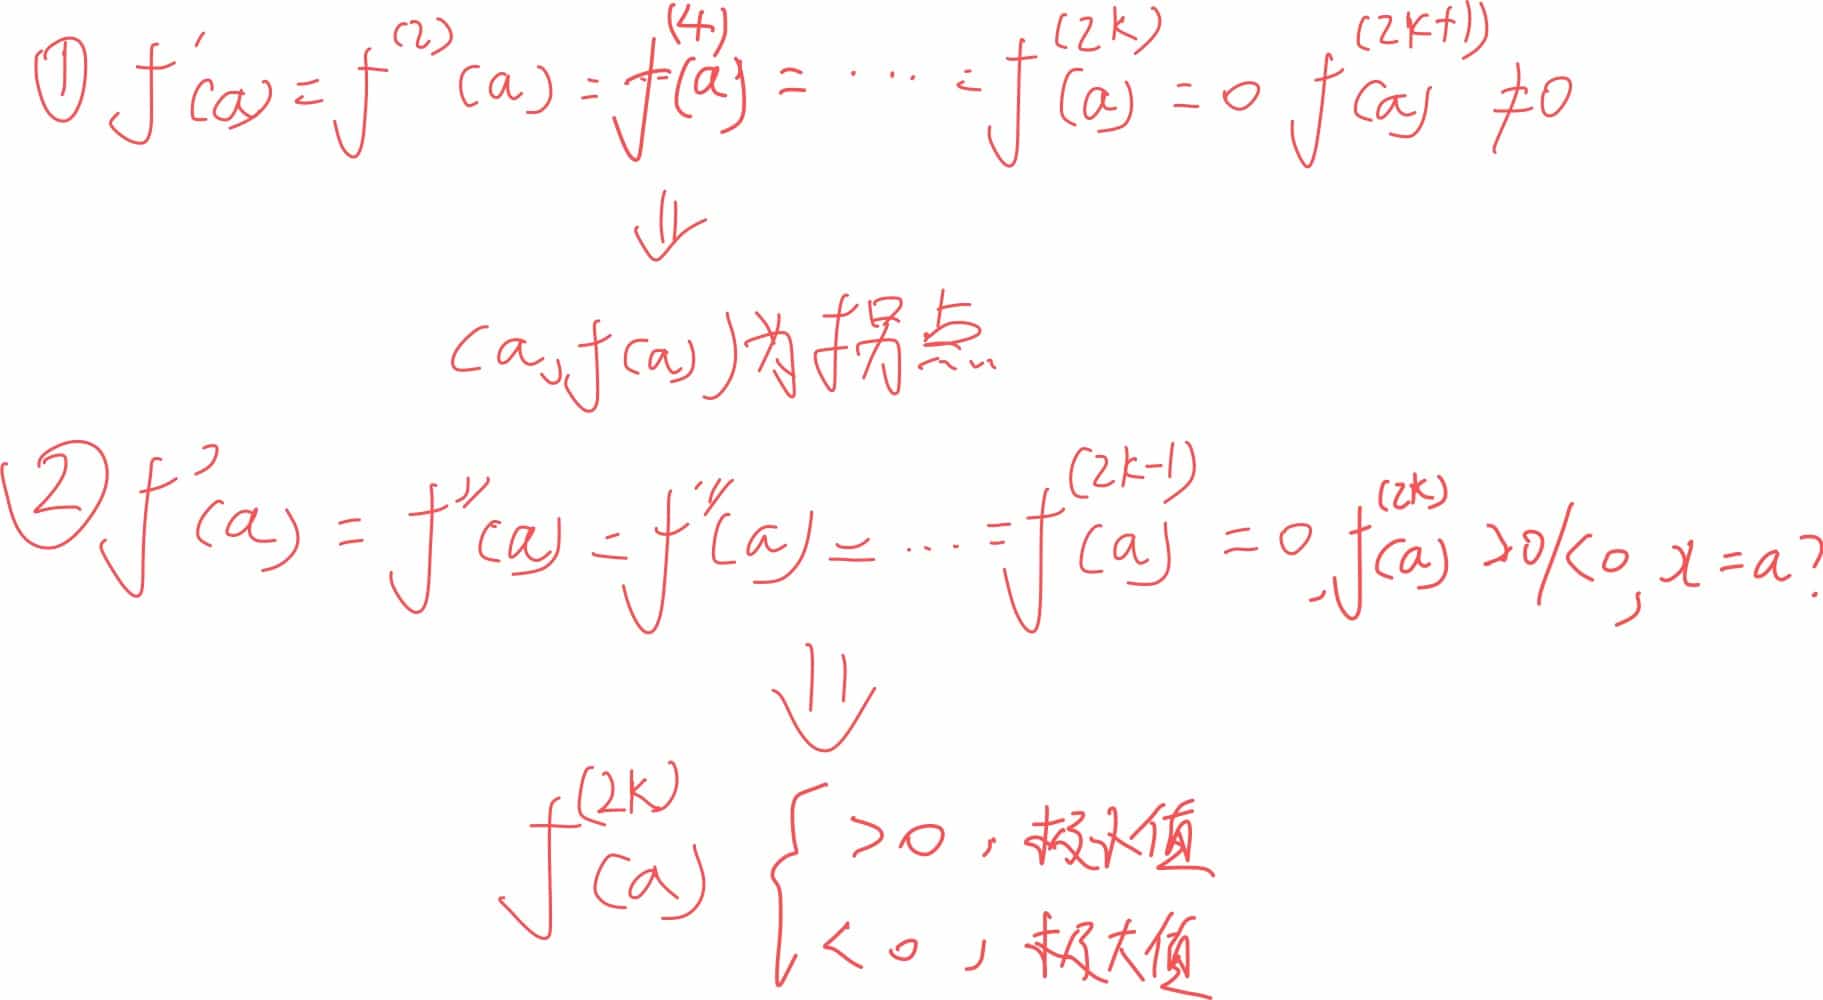 ① f'(a) = f^(2)(a) = f^(4)(a) = ··· = f^(2k)(a) = 0 f^(2k+1)(a) ≠ 0
⇓
(a, f(a)) 为拐点
② f'(a) = f''(a) = f'''(a) = ··· = f^(2k-1)(a) = 0, f^(2k)(a) >0/<0, x = a?
⇓
f^(2k)(a) { >0, 极小值
<0, 极大值